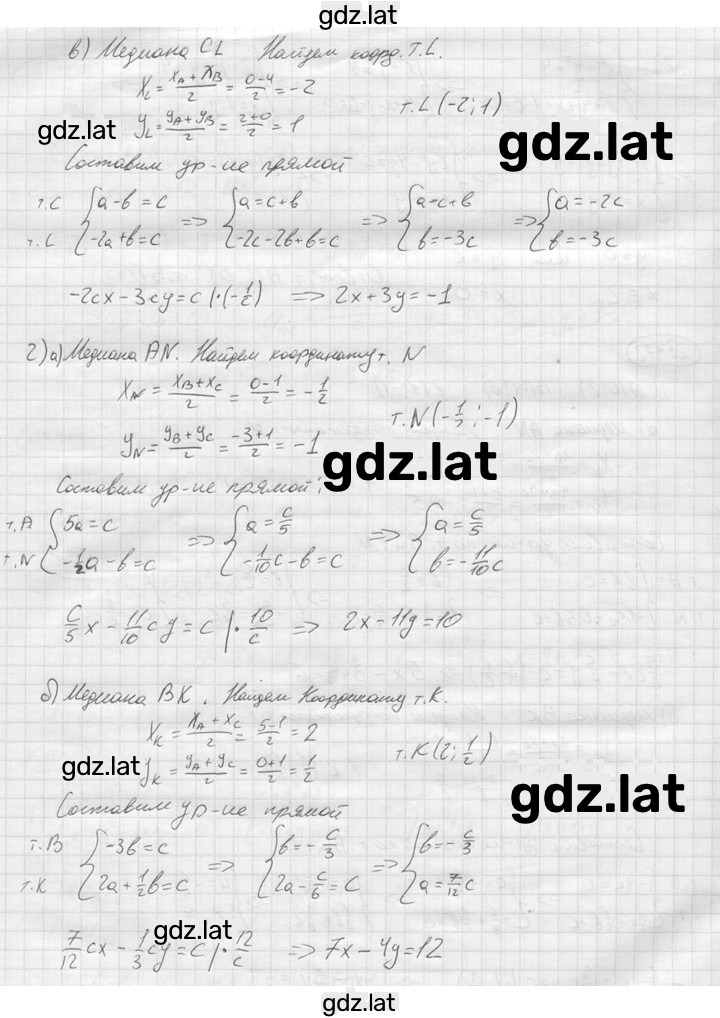 gdz.lat
в) Медиана CL Найдем коорд. т. L.
X_L = (X_A + X_B)/2 = (0-4)/2 = -2
gdz.lat y_L = (y_A + y_B)/2 = (2+0)/2 = 1 т. L (-2; 1)
gdz.lat
Составим ур-ие прямой
т. C { a-b = c => { a = c+b => { a=c+b => { a = -2c
т. L { -2a+b=c { -2c-2b+b=c { b=-3c { b=-3c
-2cx - 3cy = c |·(-1/c) => 2x+3y = -1
г) а) Медиана AN. Найдем координату т. N
X_N = (X_B + X_C)/2 = (0-1)/2 = -1/2
т. N (-1/2; -1)
y_N = (y_B + y_C)/2 = (-3+1)/2 = -1
gdz.lat
Составим ур-ие прямой:
т. A { 5a = c => { a = c/5 => { a = c/5
т. N { -1/2a - b = c { -1/10c - b = c { b = -11/10c
c/5x - 11/10cy = c |· 10/c => 2x-11y=10
б) Медиана BK. Найдем координату т. K.
X_K = (X_A + X_C)/2 = (5-1)/2 = 2
т. K (2; 1/2)
gdz.lat y_K = (y_A + y_C)/2 = (0+1)/2 = 1/2
gdz.lat
Составим ур-ие прямой
т. B { -3b = c => { b = -c/3 => { b = -c/3
т. K { 2a + 1/2b = c { 2a - c/6 = c { a = 7/12c
gdz.lat
7/12cx - 1/3cy = c |· 12/c => 7x-4y=12
gdz.lat